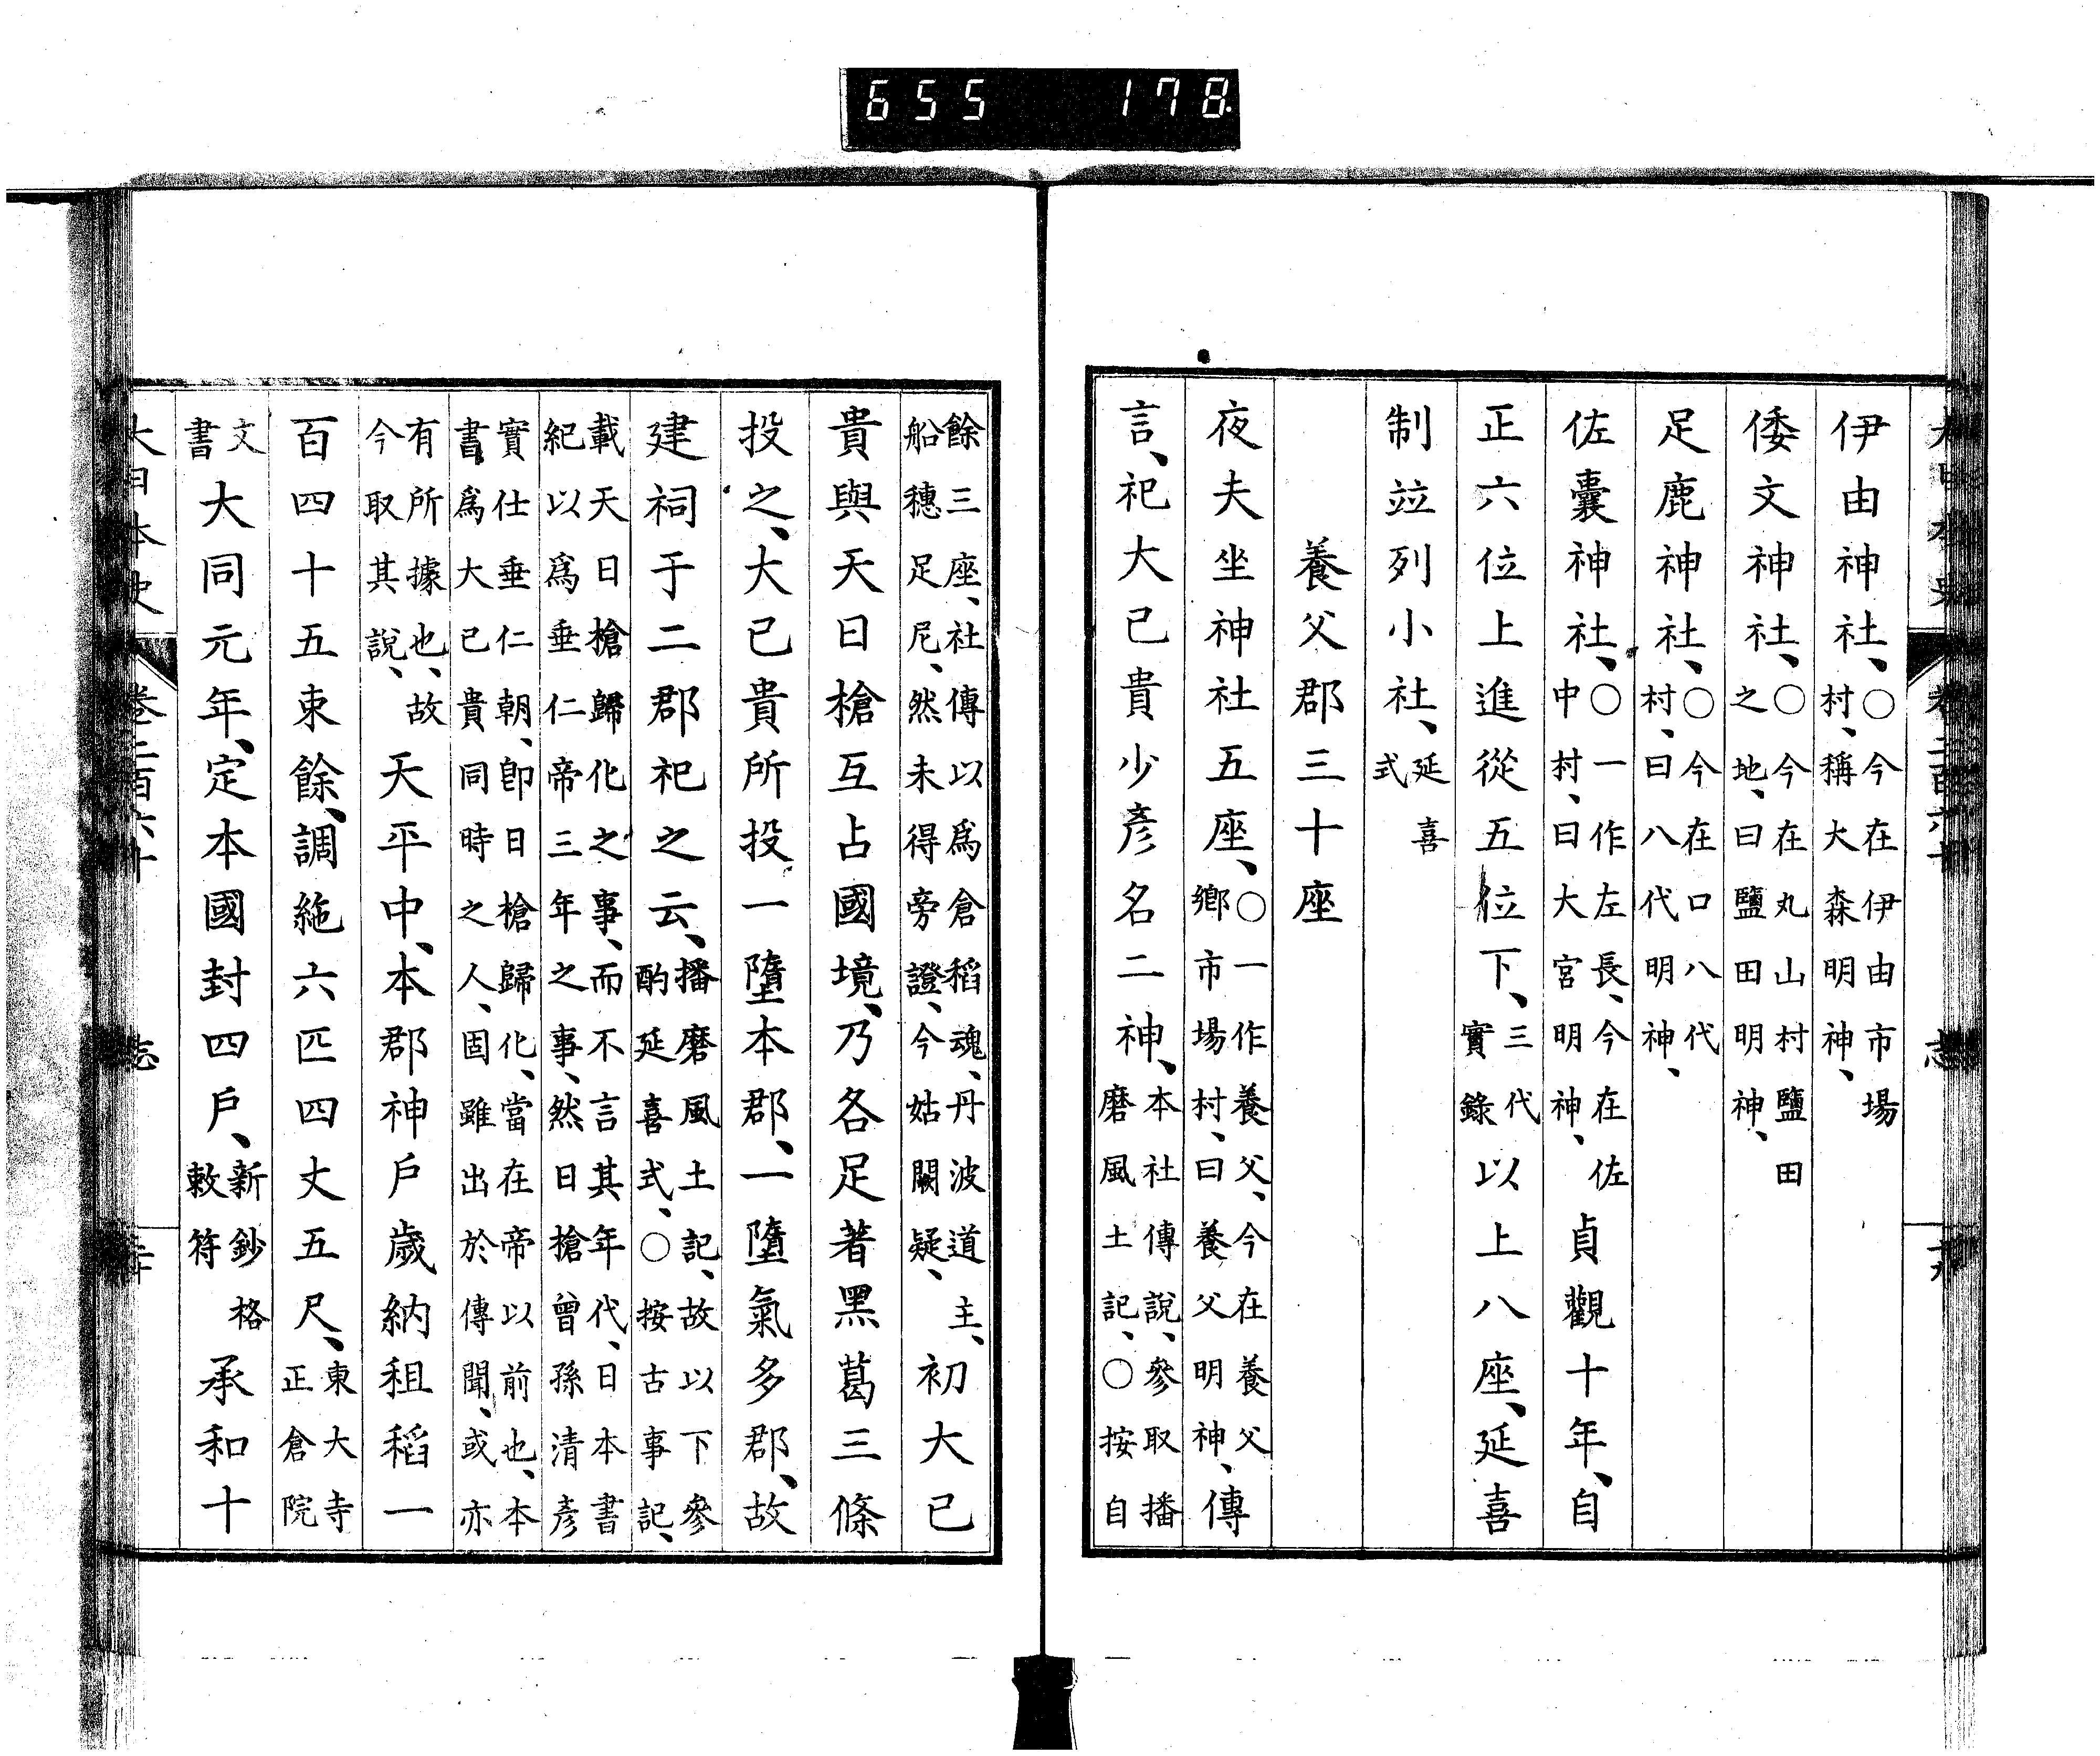 655 178
伊由神社、○今在伊由市場村、稱大森明神、
倭文神社、○今在丸山村鹽田之地、曰鹽田明神、
足鹿神社、○今在口八代村、曰八代明神、
佐囊神社、○一作左長、今在佐中村、曰大宮明神、貞觀十年、自
正六位上進從五位下、三代實錄以上八座、延喜
制竝列小社、延喜式
養父郡三十座
夜夫坐神社五座、○一作養父、今在養父鄉市場村、曰養父明神、傳
言、祀大己貴少彥名二神、本社傳說、參取播磨風土記、○按自
餘三座、社傳以爲倉稻魂、丹波道主、船穗足尼、然未得旁證、今姑闕疑、初大己
貴與天日槍互占國境、乃各足著黑葛三條
投之、大己貴所投一墮本郡、一墮氣多郡、故
建祠于二郡祀之云、播磨風土記、故以下參酌延喜式、○按古事記、
載天日槍歸化之事、而不言其年代、日本書紀以爲垂仁帝三年之事、然日槍曾孫清彥
實仕垂仁朝、卽日槍歸化、當在帝以前也、本書爲大己貴同時之人、固雖出於傳聞、或亦
有所據也、故今取其說、天平中、本郡神戶歲納租稻一
百四十五束餘、調絁六匹四丈五尺、東大寺正倉院
文書大同元年、定本國封四戶、新鈔格敕符承和十
大日本史 卷二百六十 志